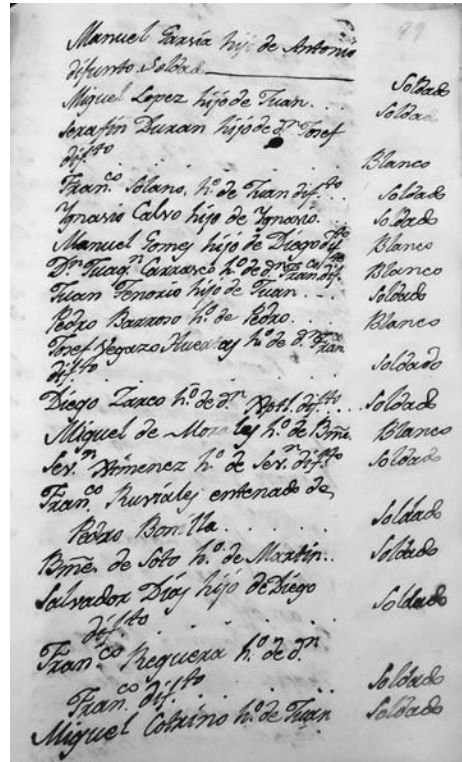 99
Manuel Garsia hijo de Antonio
difunto Soldado
Miguel Lopez hijo de Juan . . . Soldado
Serafin Duran hijo de d.n Josef Soldado
dif.to . . . . . . Blanco
Fran.co Solano, h.o de Juan dif.to Soldado
Ygnasio Calvo hijo de Ygnasio. . . Soldado
Manuel Gomez hijo de Diego dif.to Blanco
D.n Juaq.n Carrasco h.o de d.n Fran.co dif. Blanco
Juan Tenorio hijo de Juan . . . Soldado
Pedro Barroso h.o de Pedro . . . Blanco
Josef Vegazo Huertas h.o de d.n Fran.co
dif.to . . . . . . Soldado
Diego Zarco h.o de d.n Xptl. dif.to . . Soldado
Miguel de Morales h.o de Bme. Blanco
Sev.n Ximenez h.o de Sev.n dif.to Soldado
Fran.co Ruviales entenado de
Pedro Bonilla . . . . . Soldado
Bme. de Soto h.o de Martin . . Soldado
Salvador Dias hijo de Diego
dif.to . . . . . Soldado
Fran.co Reguera h.o de d.n
Fran.co dif.to . . . . . Soldado
Miguel Cotrino h.o de Juan Soldado